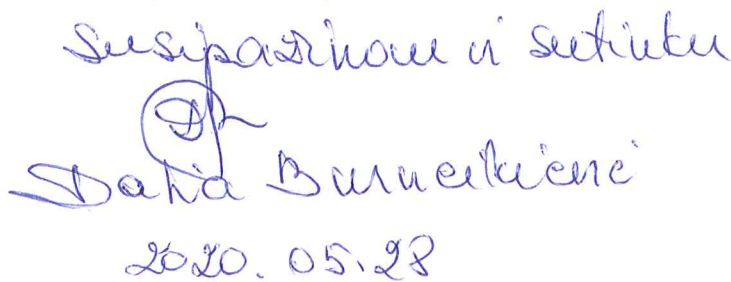 Susipažinau ir sutinku
Dalia Burneikienė
2020.05.28